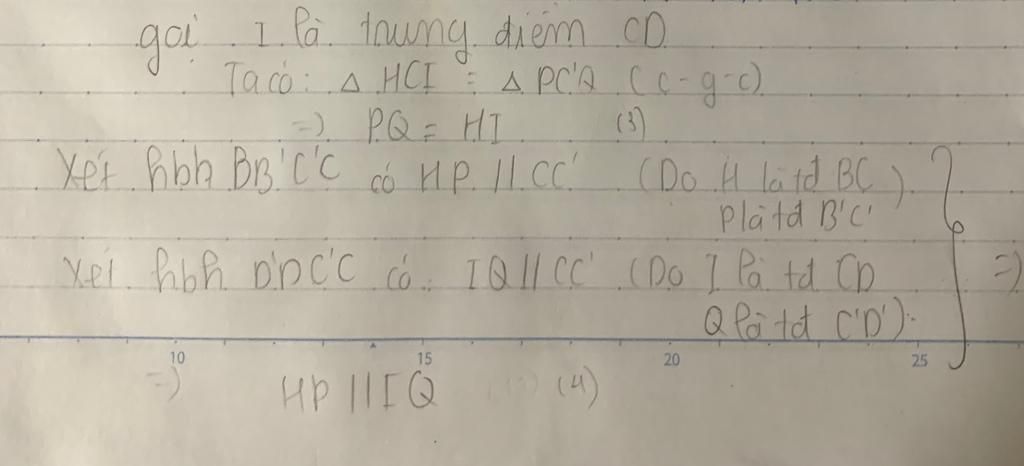 gọi I là trung điểm CD
Ta có: △ HCI = △ PC'Q (c-g-c)
=) PQ = HI (3)
Xét hbh BB'C'C có HP // CC' (Do H là tđ BC
P là tđ B'C')
Xét hbh D'DC'C có: IQ // CC' (Do I là tđ CD
Q là tđ C'D').
=)
10 15 20 25
=) HP // IQ (4)